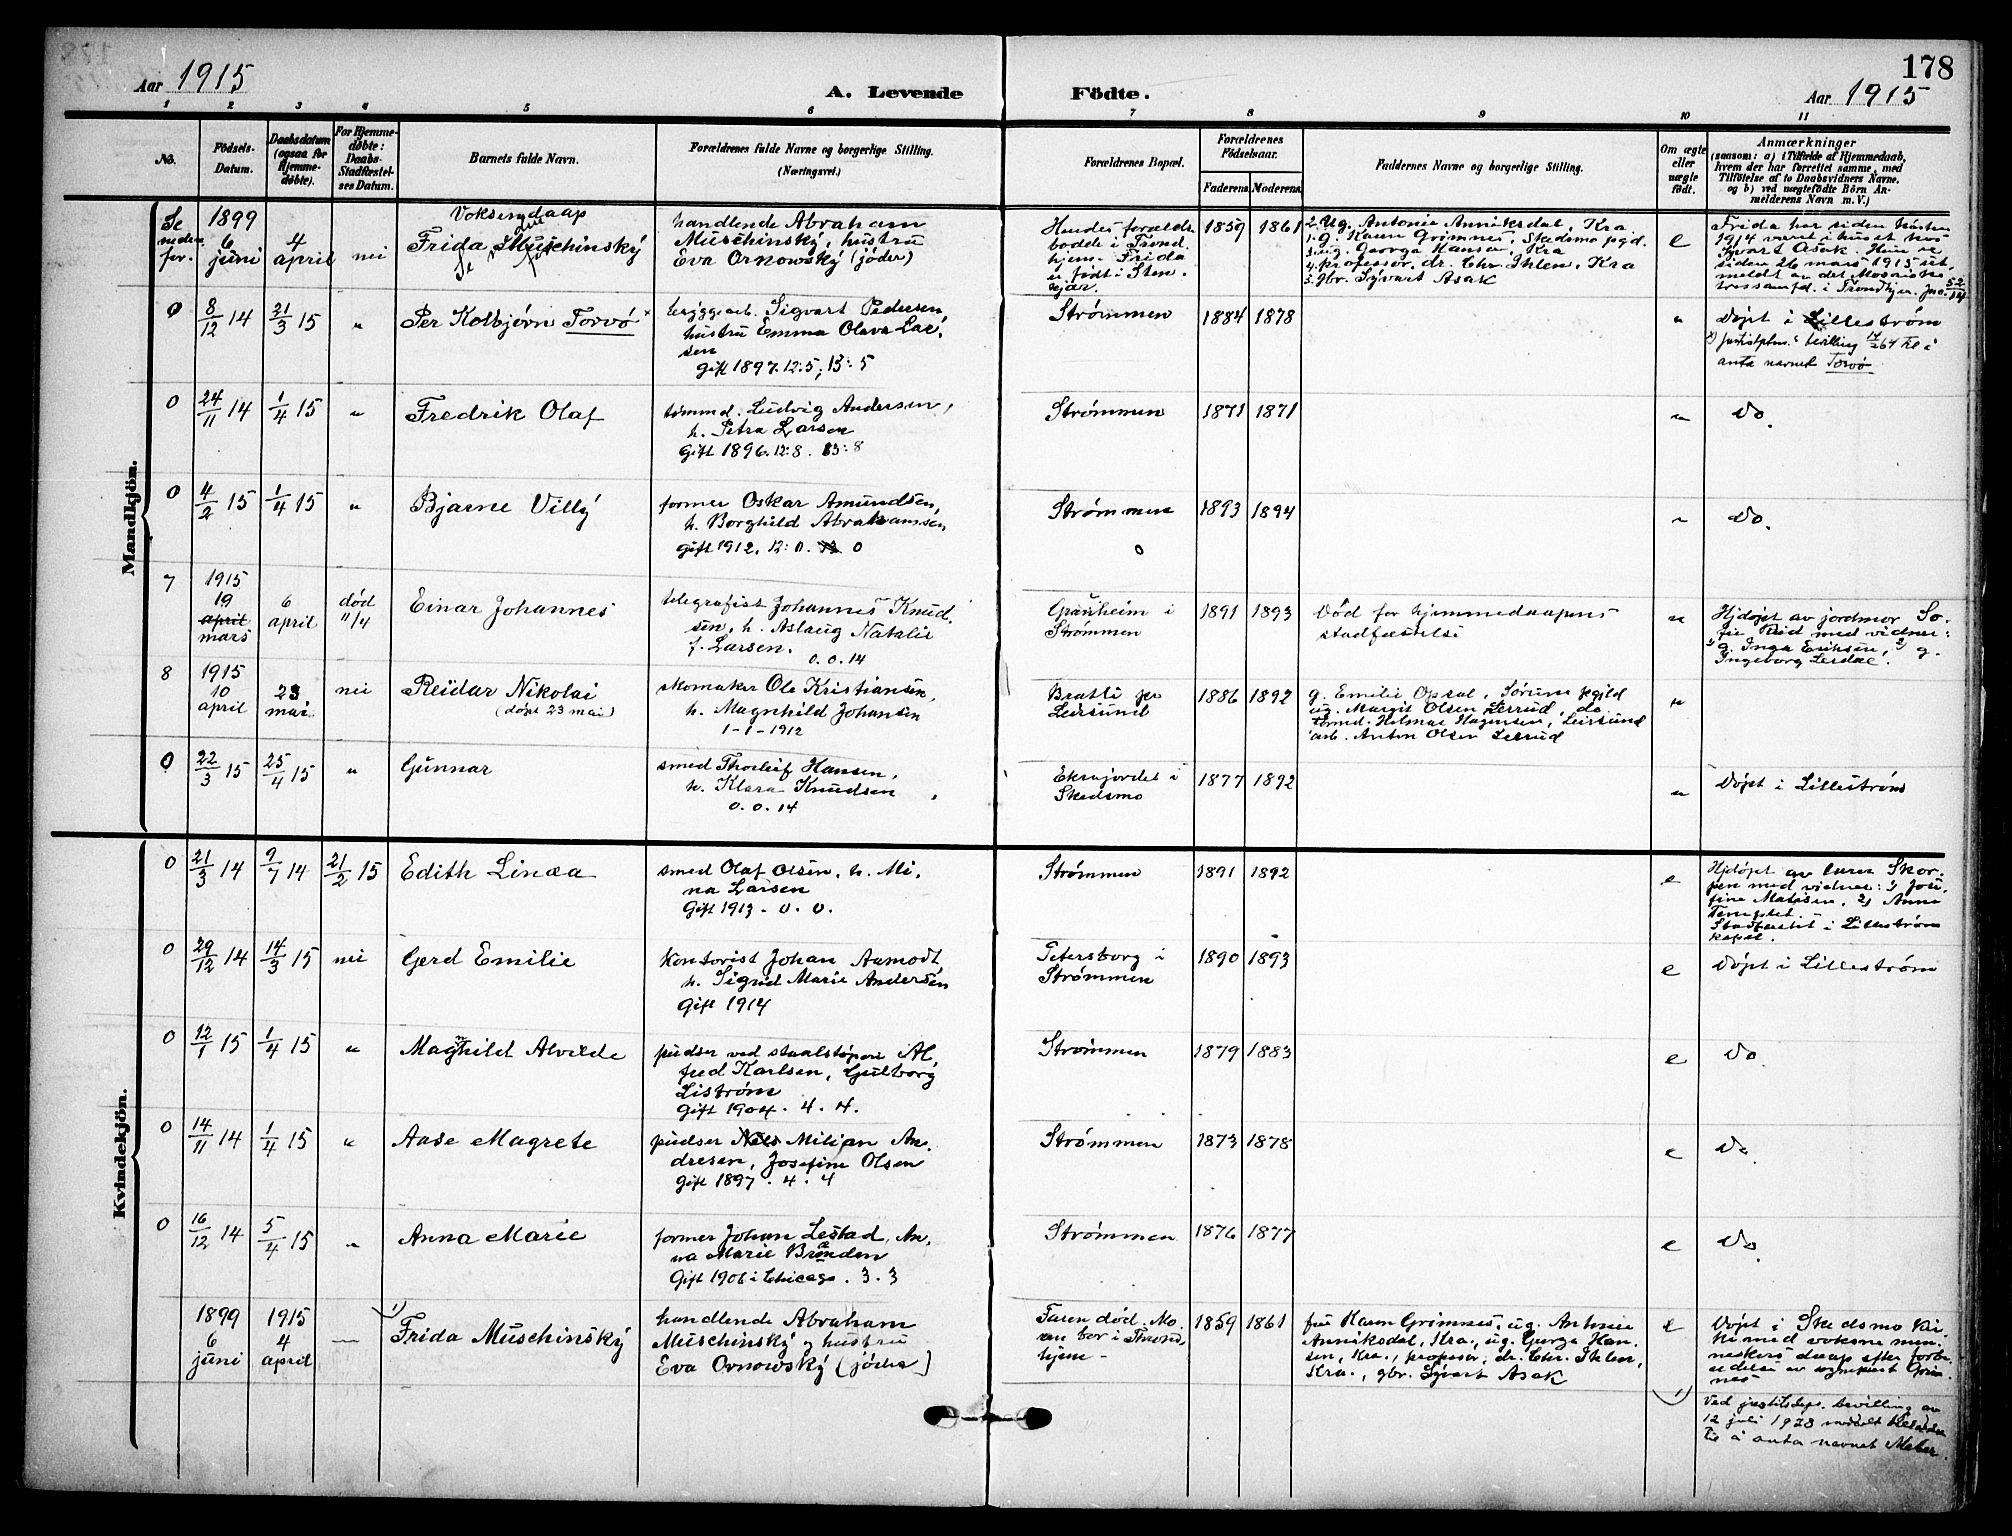 178
Aar 1915
A. Levende
Födte.
Aar 1915
1 2 3 4 5 6 7 8 9 10 11
No.
Födsels-
Datum.
Daabsdatum
(ogsaa for
Hjemme-
døbte).
For Hjemme-
døbte:
Daabs-
Stadfæstel-
ses Datum.
Barnets fulde Navn.
Forældrenes fulde Navne og borgerlige Stilling.
(Næringsvei.)
Forældrenes Bopæl.
Forældrenes
Födselsaar.
Faderens. Moderens.
Faddernes Navne og borgerlige Stilling.
Om ægte
eller
uægte
født.
Anmærkninger
(saasom: a) i Tilfælde af Hjemmedaab,
hvem der har forrettet samme, med
Tilföielse af to Daabsvidners Navne,
og b) ved uægtefödte Börn An-
melderens Navn m. V.)
Mandkjön.
Se
neden
for.
1899
6
juni
4
april
nei
Voksendaap
Frida Muschinský
Se nedenfor
handlende Abraham
Muschinský, hustru
Eva Ornowský (jøder)
Hendes foræld.
bodde i Trond.
hjem. Frida
er født i Sten
kjær.
1859 1861
2. ug. Antonie Anniksdal, Kra.
1. g. Karen Grimnes, Skedsmo pgd.
3. ug. Georga Hansen, Kra
4. professor, dr. Chr. Ihlen, Kra
5. gbr. Sývart Asak
e
Frida har siden høsten
1914 været i huset hos
Sývart Asak. Hun er
siden 26 mars 1915 ut
meldt av det Mosaiske
trossamfd. i Trondhjem.
0 8/12 14 21/3 15 " Per Kolbjørn Torvö x
byggearb. Sigvart Pedersen,
hustru Emma Olava Lar.
sen
Gift 1897. 12:5; 13:5
Strømmen 1884 1878 "
Døpt i Lillestrøm
x) Justistptm.s bevilling 64 til å
anta navnet Torvø
0 24/11 14 1/4 15 " Fredrik Olaf
tømmd. Ludvig Andersen,
h. Petra Larsen
Gift 1896. 12:8. 13:8
Strømmen 1871 1871 " Do.
0 4/2 15 1/4 15 " Bjarne Villý
former Oskar Amundsen,
h. Borghild Abrahamsen,
Gift 1912. 12:0. 0
Strømmen 1893 1894 " Do.
0
7 1915
19
april
mars
6
april
død
11/4
Einar Johannes
telegrafist Johannes Knud.
sen, h. Aslaug Natalie
f. Larsen.
0. 0. 14
Granheim i
Strømmen
1891 1893
Død for hjemmedaapens
stadfæstelse
"
Hjdøpt av jordmor So.
fie Rud med vidner:
1) g. Inga Eriksen, 2) g.
Ingeborg Lerdal.
8 1915
10
april
23
mai
nei
Reidar Nikolai
(døpt 23 mai)
skomaker Ole Kristiansen,
h. Magnhild Johansen
1-1-1912
Bratli pr
Leirsund
1886 1892
g. Emilie Opsal, Sørum pgjld
ug. Margit Olsen Lerrud, do.
tømd. Hilmar Hagensen, Leirsund
arb. Anton Olsen Lerrud
"
0 22/3 15 25/4 15 " Gunnar
smed Thorleif Hansen,
h. Klara Knudsen
0. 0. 14
Ekrajordet i
Skedsmo
1877 1892 " Døpt i Lillestrøm
Kvindekjön.
0 21/3 14 9/7 14 21/2 15 Edith Linæa
smed Olaf Olsen, h. Mi.
na Larsen
Gift 1913. 0. 0.
Strømmen 1891 1892 e
Hjdøpt av lærer Skor.
pen med vidner: 1) Jose.
fine Matisen, 2) Anna
Stadfæstet i Lillestrøm
kapel.
0 29/12 14 14/3 15 nei Gerd Emilie
Kontorist Johan Aamodt
h. Sigrid Marie Andersen
Gift 1914
Petersborg i
Strømmen
1890 1893 e Døpt i Lillestrøm
0 12/1 15 1/4 15 " Magnhild Alvilde
pudser ved staalstøperi Al.
fred Karlsen, Gulborg
Liström
Gift 1904. 4. 4.
Strømmen 1879 1883 e Do
0 14/11 14 1/4 15 " Aase Magrete
pudser Nils Milian An.
dresen, Josefine Olsen
Gift 1897. 4. 4
Strømmen 1873 1878 e Do.
0 16/12 14 5/4 15 " Anna Marie
former Johan Lestad, An.
na Marie Brænden
Gift 1906 i Chicago. 3. 3
Strømmen 1876 1877 e Do
1899
6
juni
1915
4
april
—
1) Frida Muschinský
handlende Abraham
Muschinský og hustru
Eva Ornowský (jøder)
Faren død. Mo.
ren bor i Trond.
hjem -
1859 1861
fru Karen Grimnes, ug. Antonie
Anniksdal, Kra., ug. Georga Han
sen, Kra., professor, dr. Chr. Ihlen,
Kra., gbr. Sývart Asak
e
Døpt i Skedsmo kir
ke med voksne men
neskers daap efter forbe
redelse av sogneprest Grim
nes
1)
Ved justisdeps. bevilling av
12 juli 1928 meddelt tilladelse
til å anta navnet